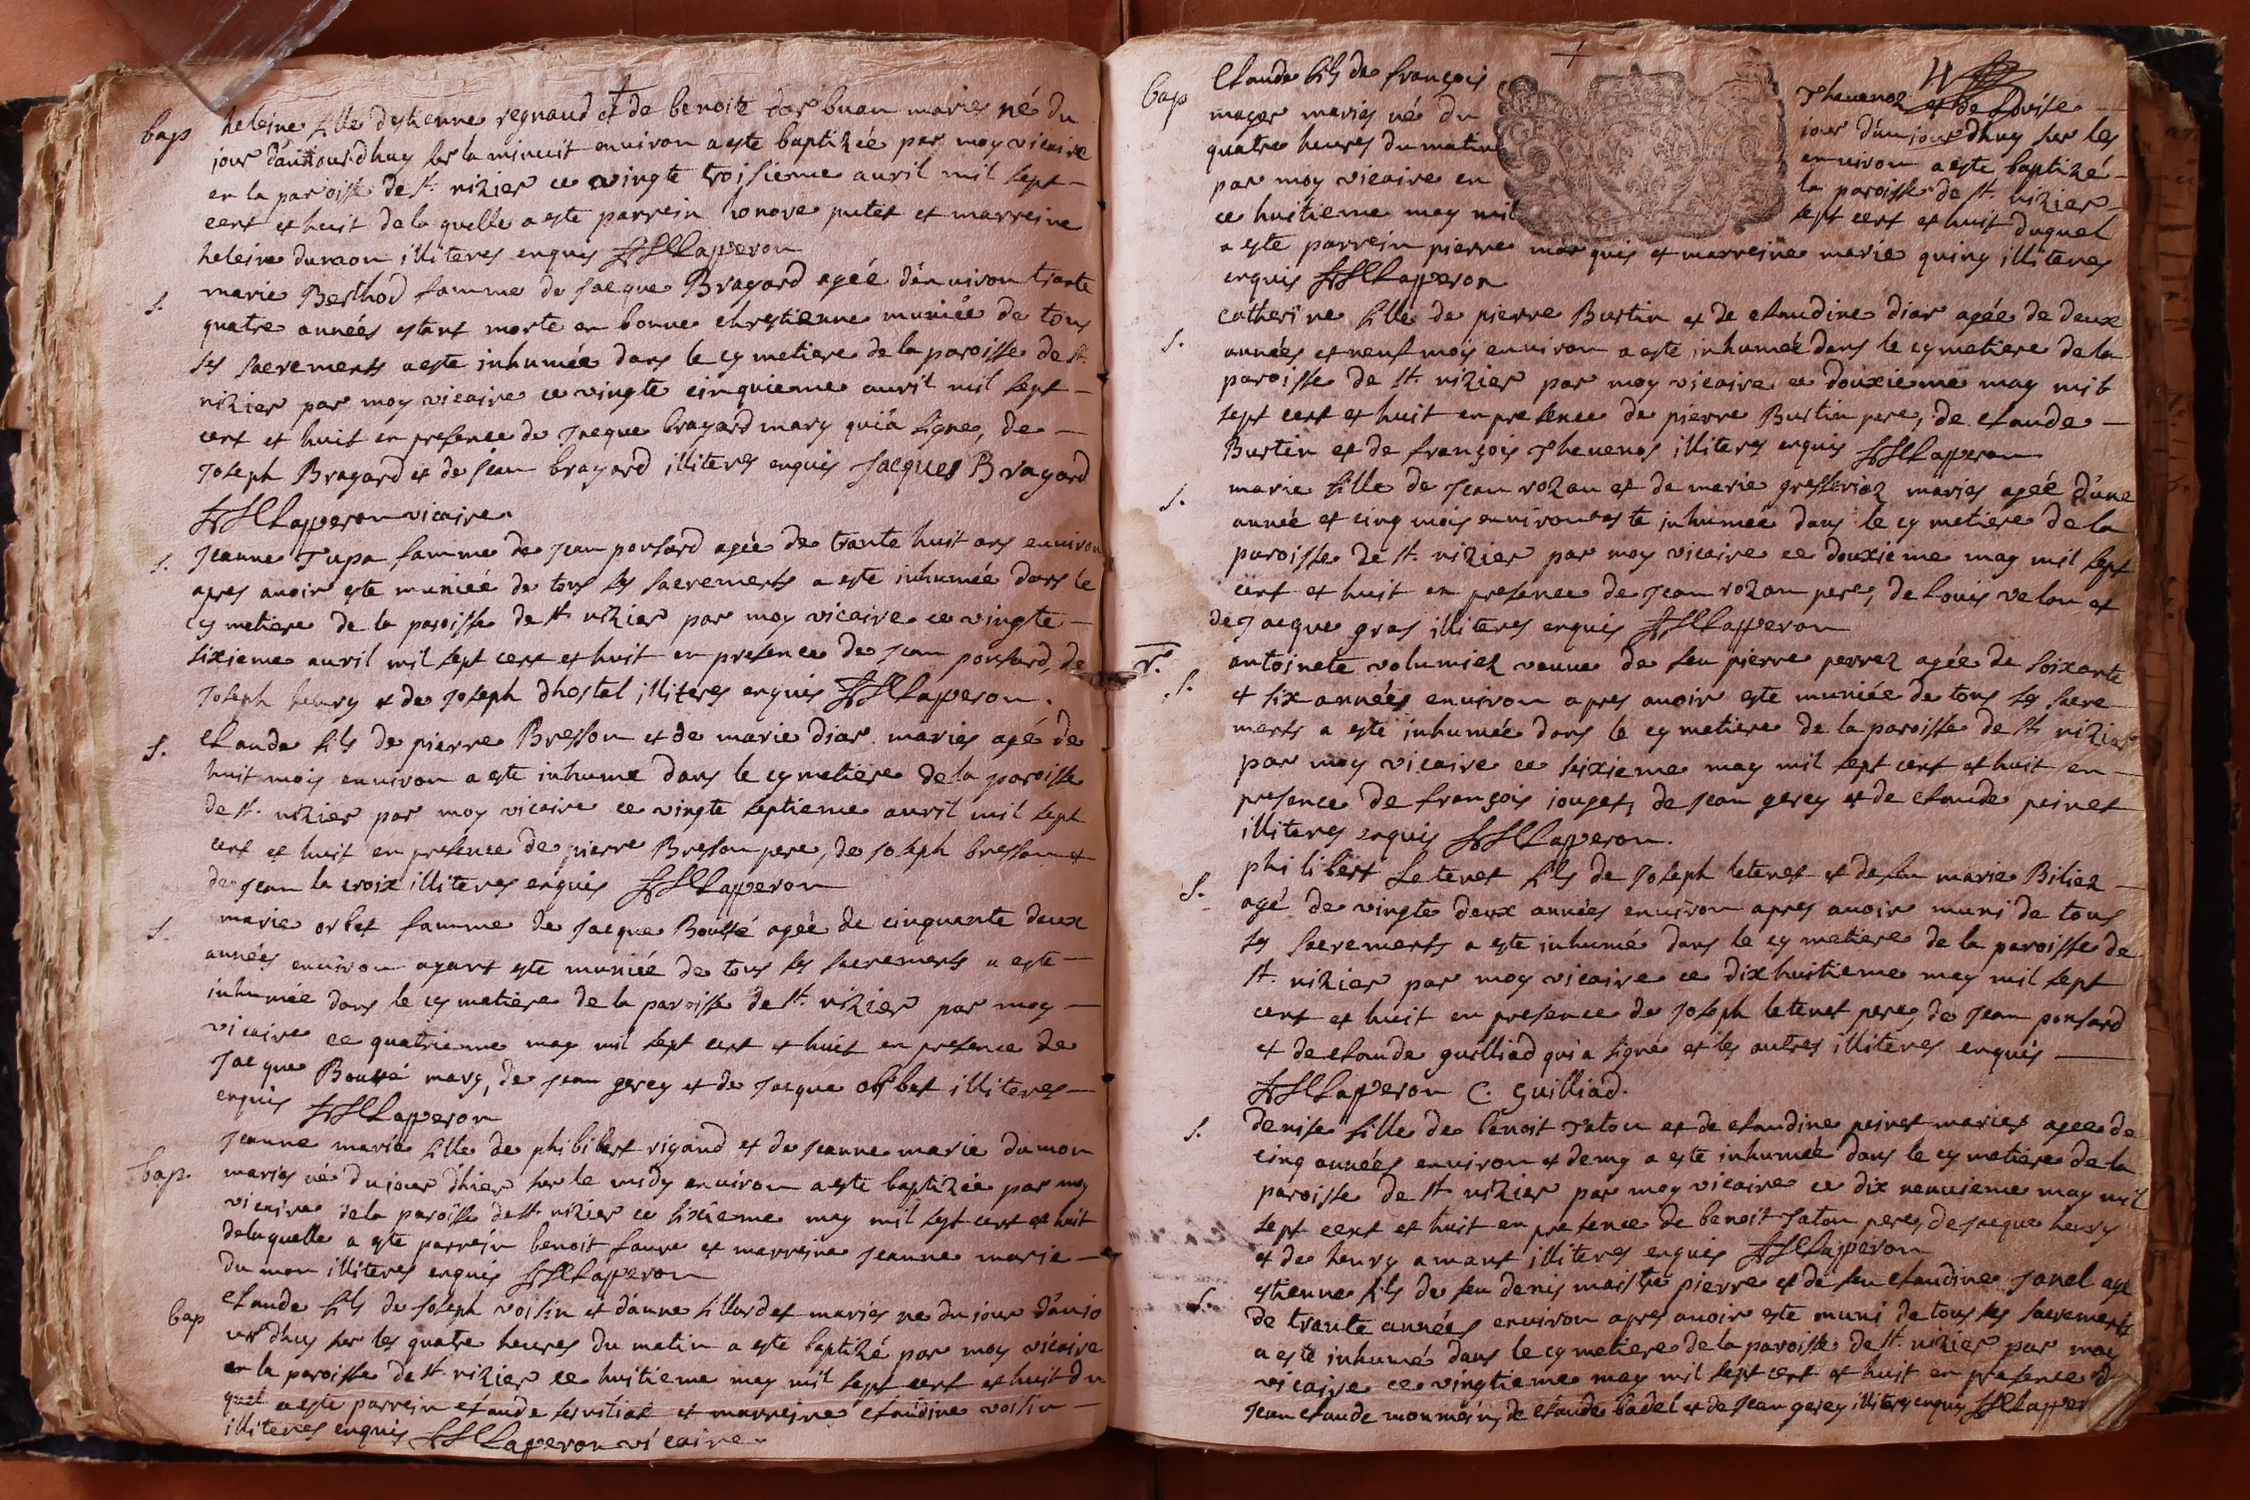 bap heleine fille destienne regnaud et de benoite dar buan mariés né du
jour d'aujourdhuy sur la minuit environ a este baptizée par moy vicaire
en la paroisse de st. nizier ce vingte troisieme auril mil sept
cent et huit de la quelle a este parrein et marreine
heleine duraon illiteres enquis Lapperon
s. marie Berthod famme de Jacque Bragard agée d'anuiron trante
quatre années estant morte en bonne chrestienne muniée de tous
ses sacrements a este inhumée dans le cymetiere de la paroisse de st.
nizier par moy vicaire ce vingte cinquieme auril mil sept
cent et huit en presence de Jacque bragard mary qui a signe, de
Joseph Bragard et de Jean bragard illiteres enquis Jacques Bragard
Lapperon vicaire.
s. Jeanne Tupa famme de Jean ponsard agée de trante huit ans enuiron
apres auoir este muniée de tous ses sacrements a este inhumée dans le
cymetiere de la paroisse de st nizier par moy vicaire ce vingte
sixieme auril mil sept cent et huit en presence de Jean ponsard, de
Joseph henry et de Joseph dhostel illiteres enquis Lapperon.
s. Claude fils de pierre Bresson et de marie diar mariés agé de
huit mois enuiron a este inhume dans le cymetiere de la paroisse
de st. nizier par moy vicaire ce vingte septieme auril mil sept
cent et huit en presence de pierre Bresson pere, de Joseph bresson et
de Jean la croix illiteres enquis Lapperon
s. marie orbet famme de Jacque Boussé agée de cinquante deux
années enuiron ayant este muniée de tous ses sacrements a este
inhumée dans le cymetiere de la paroisse de st. nizier par moy
vicaire ce quatrieme may mil sept cent et huit en presence de
Jacque Boussé mary, de Jean gerey et de Jacque orbet illiteres
enquis Lapperon
bap. Jeanne marie fille de philibert rigaud et de Jeanne marie dumon
mariés né du jour d'hier sur le midy enuiron a este baptizée par moy
vicaire de la paroisse de st nizier ce sixieme may mil sept cent et huit
de laquelle a este parrein benoit faure et marreine Jeanne marie
du mon illiteres enquis Lapperon
bap Claude fils de Joseph voisin et d'anne fillardet mariés né du jour d'aujo
urdhuy sur les quatre heures du matin a este baptizé par moy vicaire
en la paroisse de st. nizier ce huitieme may mil sept cent et huit du
quel a este parrein claude et marreine claudine voisin
illiteres enquis Lapperon vicaire.
4
bap Claude fils de françois Theuenoz et de Louise
mager mariés né du jour d'aujourdhuy sur les
quatre heures du matin enuiron a este baptizé
par moy vicaire en la paroisse de st. nizier
ce huitieme may mil sept cent et huit duquel
a este parrein pierre marquis et marreine marie quiny illiteres
enquis Lapperon
s. Catherine fille de pierre Burtin et de claudine diar agée de deux
années et neuf mois enuiron a este inhumée dans le cymetiere de la
paroisse de st. nizier par moy vicaire ce douxieme may mil
sept cent et huit en presence de pierre Burtin pere, de claude
Burtin et de françois Theuenos illiteres enquis Lapperon
s. marie fille de Jean rozan et de marie mariés agée d'une
année et cinq mois enuiron a este inhumée dans le cymetiere de la
paroisse de st. nizier par moy vicaire ce douxieme may mil sept
cent et huit en presence de Jean rozan pere, de Louis velon et
de Jacque gras illiteres enquis Lapperon
s. antoinete volumiez veuue de feu pierre perrez agée de soixante
et six années enuiron apres auoir este muniée de tous ses sacre
ments a este inhumée dans le cymetiere de la paroisse de st nizier
par moy vicaire ce seixieme may mil sept cent et huit en
presence de françois iouget, de Jean gerey et de claude peinet
illiteres enquis Lapperon.
s. philibert Letenet fils de Joseph letenet et de feu marie Biliez
agé de vingte deux années enuiron apres auoir muni de tous
ses sacrements a este inhumé dans le cymetiere de la paroisse de
st. nizier par moy vicaire ce dixhuitieme may mil sept
cent et huit en presence de Joseph letenet pere, de Jean ponsard
et de claude guilliad qui a signé et les autres illiteres enquis
Lapperon C. Guilliad.
s. Denise fille de benoit Taton et de claudine peinet mariés agée de
cinq années enuiron et demy a este inhumée dans le cymetiere de la
paroisse de st nizier par moy vicaire ce dix neuuieme may mil
sept cent et huit en presence de benoit Taton pere, de Jacque henry
et de henry amant illiteres enquis Lapperon
s. estienne fils de feu denis maistre pierre et de feu claudine Janel agé
de trante années enuiron apres auoir este muni de tous ses sacrements
a este inhumé dans le cymetiere de la paroisse de st. nizier par moy
vicaire ce vingtieme may mil sept cent et huit en presence d
Jean claude monmoin, de claude badel et de Jean gerey illiteres enquis Lapper